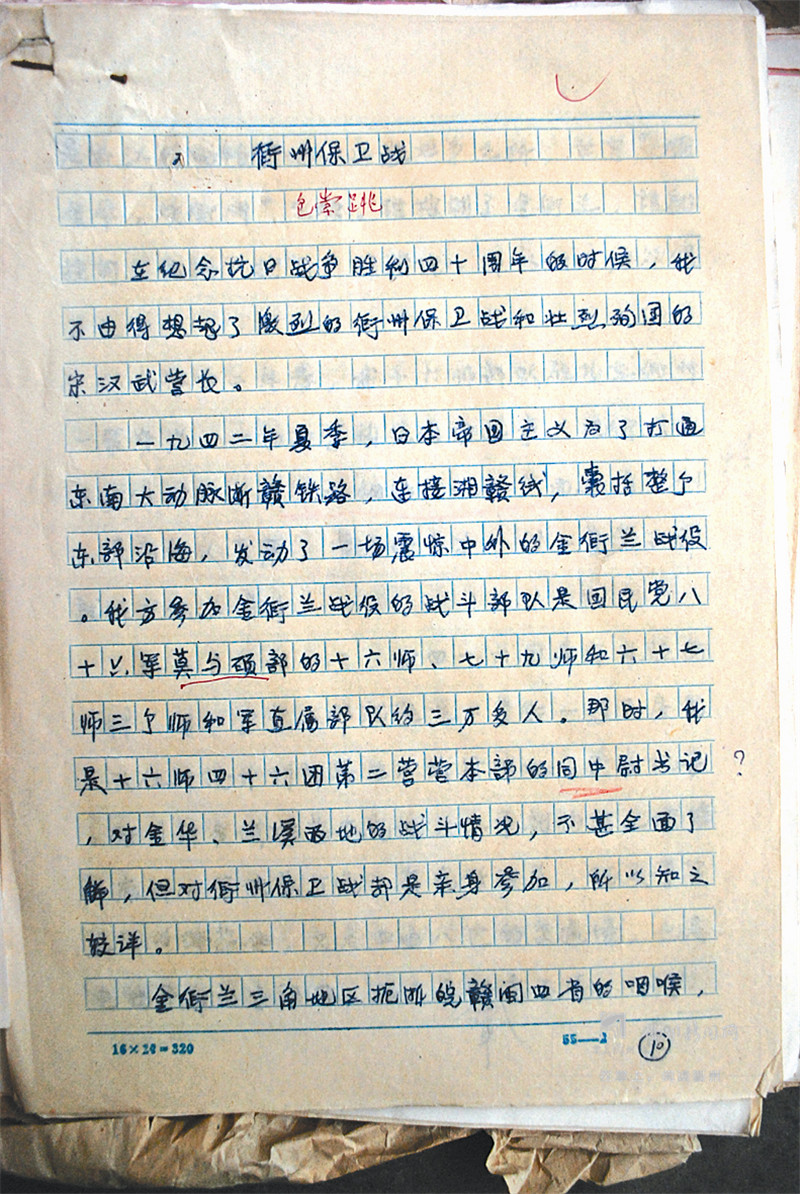 衢州保卫战
包崇跳
在纪念抗日战争胜利四十周年的时候，我
不由得想起了激烈的衢州保卫战和壮烈殉国的
宋汉武营长。
一九四二年夏季，日本帝国主义为了打通
东南大动脉浙赣铁路，连接湘赣线，囊括整个
东部沿海，发动了一场震惊中外的金衢兰战役
。我方参加金衢兰战役的战斗部队是国民党八
十六军莫与硕部的十六师、七十九师和六十七
师三个师和军直属部队约三万多人。那时，我
是十六师四十六团第二营营本部的同中尉书记
？
，对金华、兰溪两地的战斗情况，不甚全面了
解，但对衢州保卫战却是亲身参加，所以知之
较详。
金衢兰三角地区扼浙皖赣闽四省的咽喉，
16×20=320
55—1
10